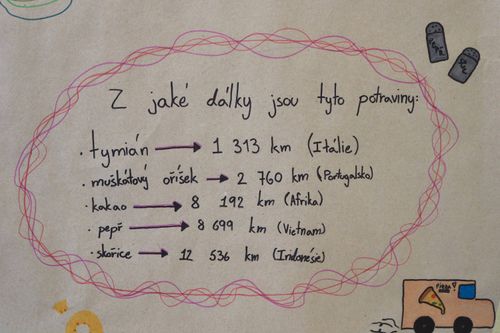 Z jaké dálky jsou tyto potraviny:
· tymián → 1 313 km (Itálie)
· muškátový oříšek → 2 760 km (Portugalsko)
· kakao → 8 192 km (Afrika)
· pepř → 8 699 km (Vietnam)
· skořice → 12 536 km (Indonésie)